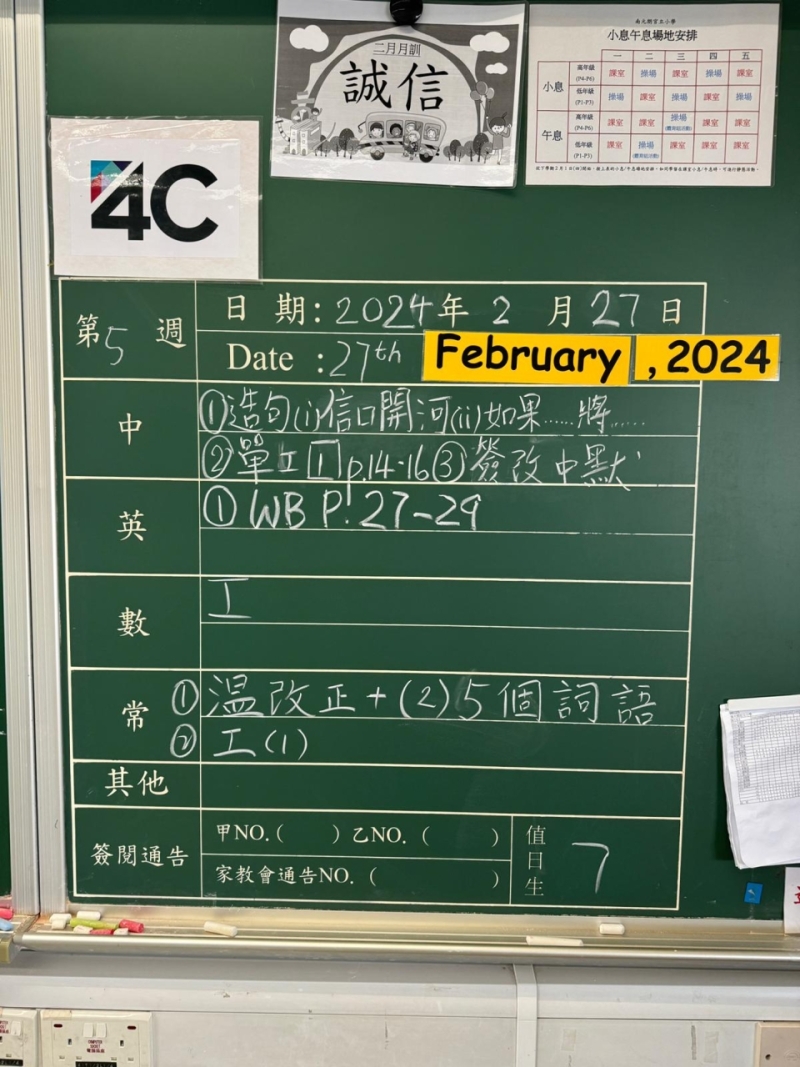 二月月訓
誠信
南元朗官立小學
小息午息場地安排
一 二 三 四 五
小息
高年級 (P4-P6) 課室 操場 課室 操場 課室
低年級 (P1-P3) 操場 課室 操場 課室 操場
午息
高年級 (P4-P6) 課室 課室 操場 課室 課室
低年級 (P1-P3) 課室 操場 課室 課室 課室
4C
第5週
日期:2024年2月27日
Date :27th February , 2024
中
①造句(i)信口開河(ii)如果……將……
②單工1p.14-16③簽改中默
英
①WB P.27-29
數
工
常
①温改正+(2)5個詞語
②工(1)
其他
簽閱通告
甲NO.( ) 乙NO.( )
家教會通告NO.( )
值日生
7